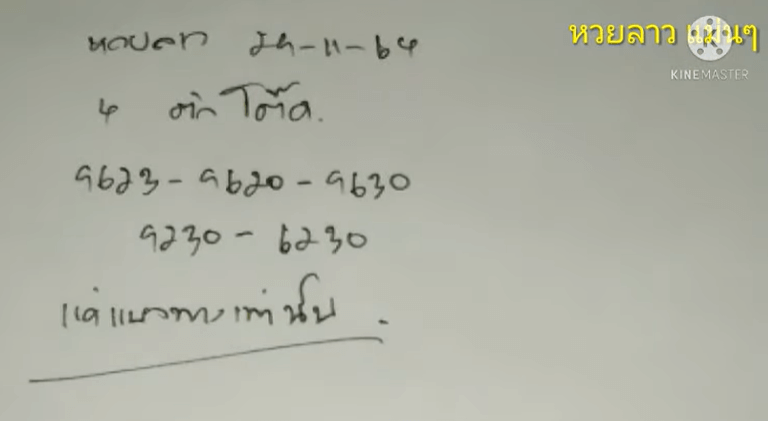 หวยลาว แม่นๆ
KINEMASTER
หวยลาว 29-11-64
4 ตัวโต๊ด.
9623 - 9620 - 9630
9230 - 6230
แค่แนวทางเท่านั้น.